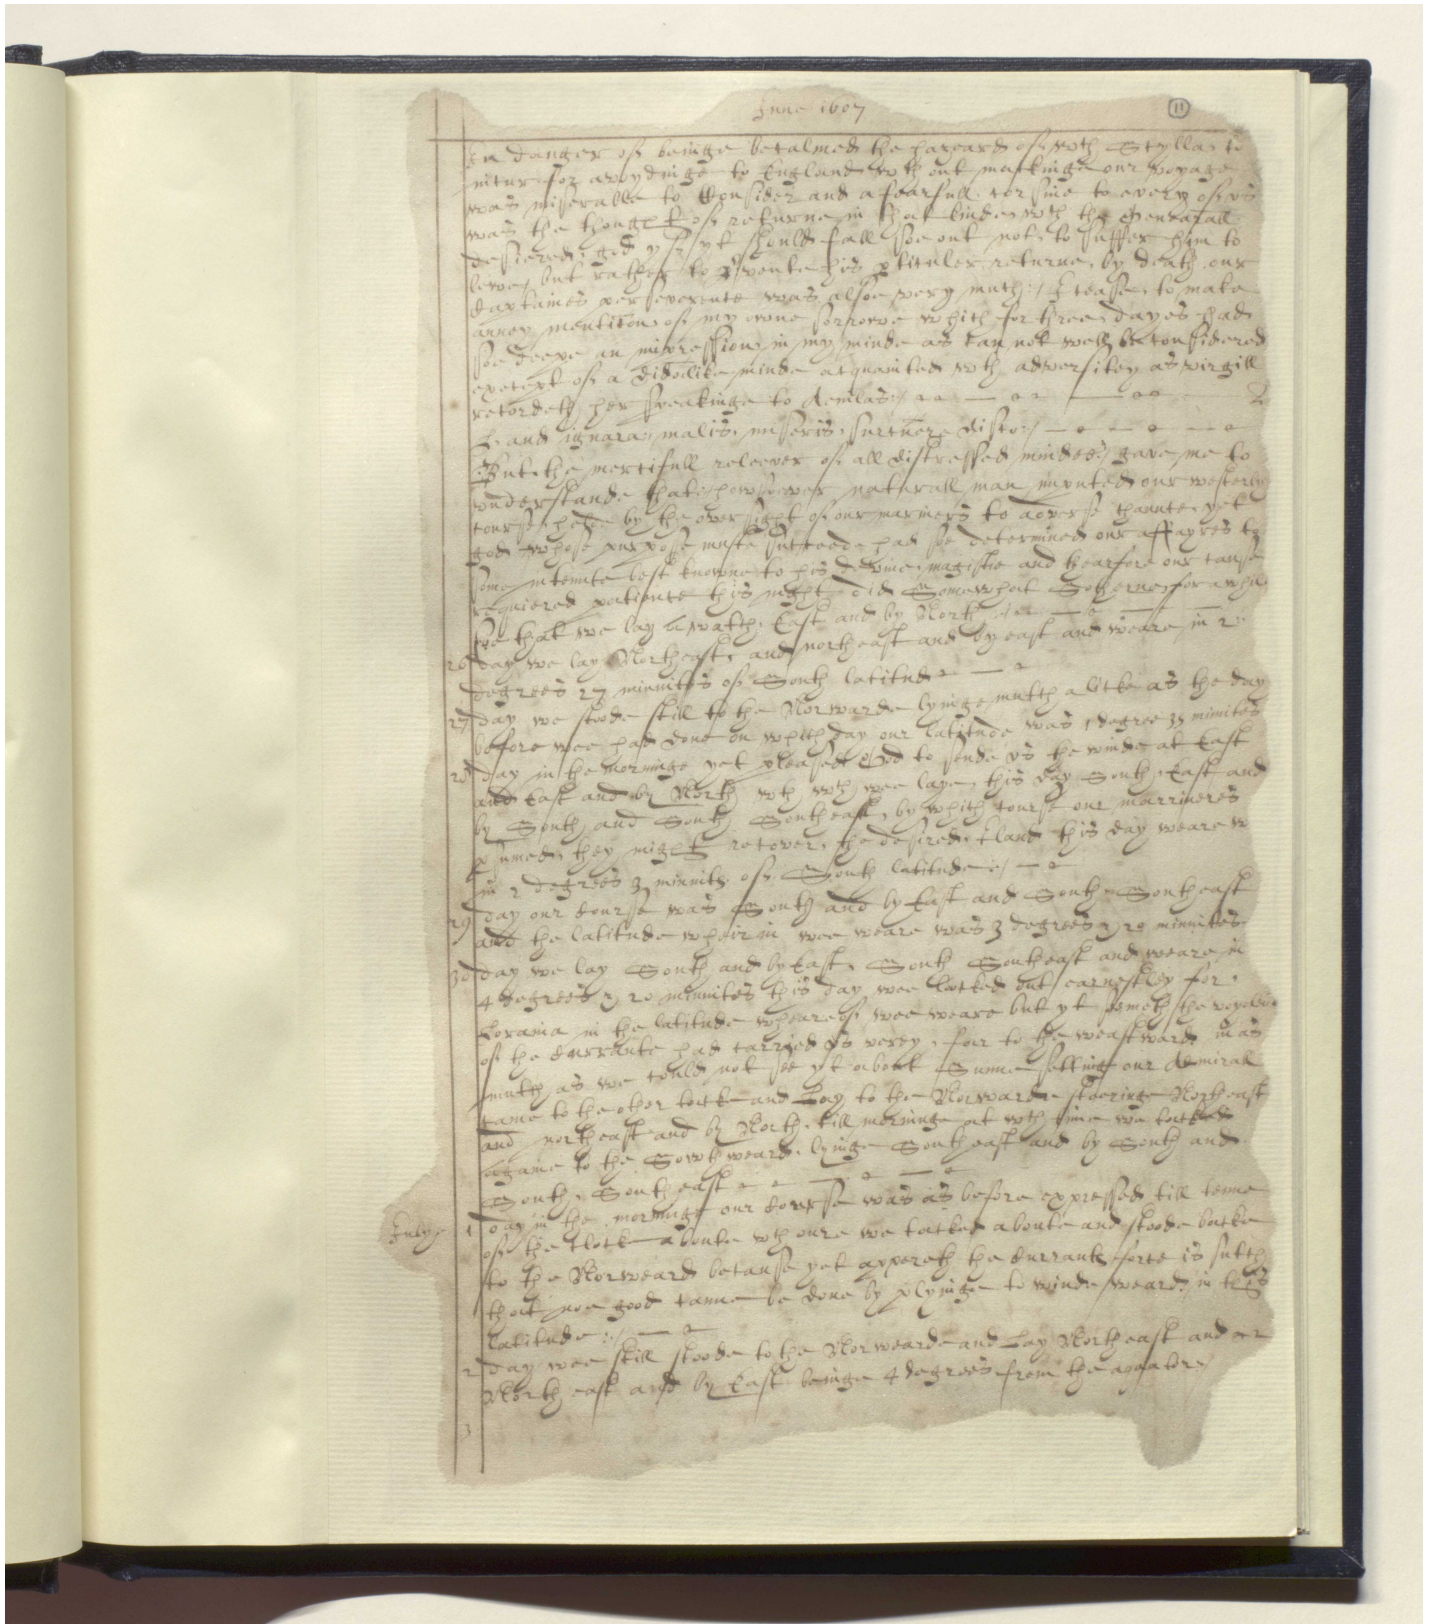 June 1607
11
In danger of beinge becalmed the hazard of wch Scylla to
incur for avoydinge to England wth out makinge our voyage
was miserable to Consider and a fearfull to every of us
was the thought of returne in that kinde wch the Generall
desiered god yf yt should fall soe out not to suffer him to
leive, but rather to prevente his pticuler returne, by death, our
Captaines perseverence was alsoe very much:/ I cease, to make
anney mention of my owne sorrowe which for three dayes had
soe deepe an impression in my minde as can not well be Considered
except of a didolike minde acquainted wth adversitey as virgill
recordeth her speakinge to Aenias:/
and ignara, malis, miseris, sucurere disco:/
But the mercifull releever of all distressed mindes, gave me to
understande that howsoever naturall man imputed our westerly
course, by the oversight of our mariners to adverse chaunce, yet
god whose purpose muste succeede had soe determined our affayres to
some intente best knowne to his devine magistie and thearfore our cause
requiered patience this night did Somewhat Sotherne, for a while
soe that we lay a watch East and by North
26 day we lay Northeast, and northeast and by east and weare in 2
degrees 27 minnites of South latitude
27 day we stoode still to the Norwarde lyinge mutch alike as the day
before wee had done on which day our latitude was 1 degree 35 minnites
28 day in the morninge yet pleased God to sende us the winde at East
and East and by North wth wch wee laye, this day South, East and
by South and South Southeast, by which course our marrineres
psumed, they might recover, the desired Iland this day weare w
in 2 degrees 3 minnits of South latitude:/
29 day our Course was South and by East and South Southeast
and the latitude whearin wee weare was 3 degrees 20 minnites
30 day we lay South and by East, South Southeast and weare in
4 degrees 20 minnites this day wee looked out earnestley for
Lorania in the latitude wheareof wee weare but yt semeth the
of the Currante had carryed us verey, far to the weastward in as
mutch as we could not see yt about Sunne setting our Admirall
came to the other tacke and Lay to the Norwarde steeringe Northeast
and northeast and by North, till morninge at wch time we tacked
againe to the Sowthweard, lyinge Southeast and by South and
South, Southeast
July 1 day in the morninge our Course was as before expressed till tenne
of the Clocke aboute wch oure we tacked aboute and stoode backe
to the Norweard because yet appereth the Currants force is sutch
that noe good canne be done by plyinge to winde weard in this
latitude:/
2 day wee still stoode to the Norwearde and Lay Northeast and
North east and by East beinge 4 degrees from the aquator/
3